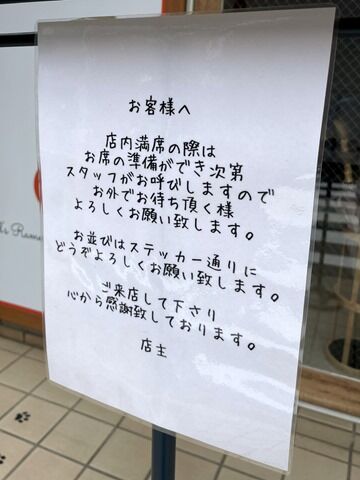 お客様へ
店内満席の際は
お席の準備ができ次第
スタッフがお呼びしますので
お外でお待ち頂く様
よろしくお願い致します。
お並びはステッカー通りに
どうぞよろしくお願い致します。
ご来店して下さり
心から感謝致しております。
店主